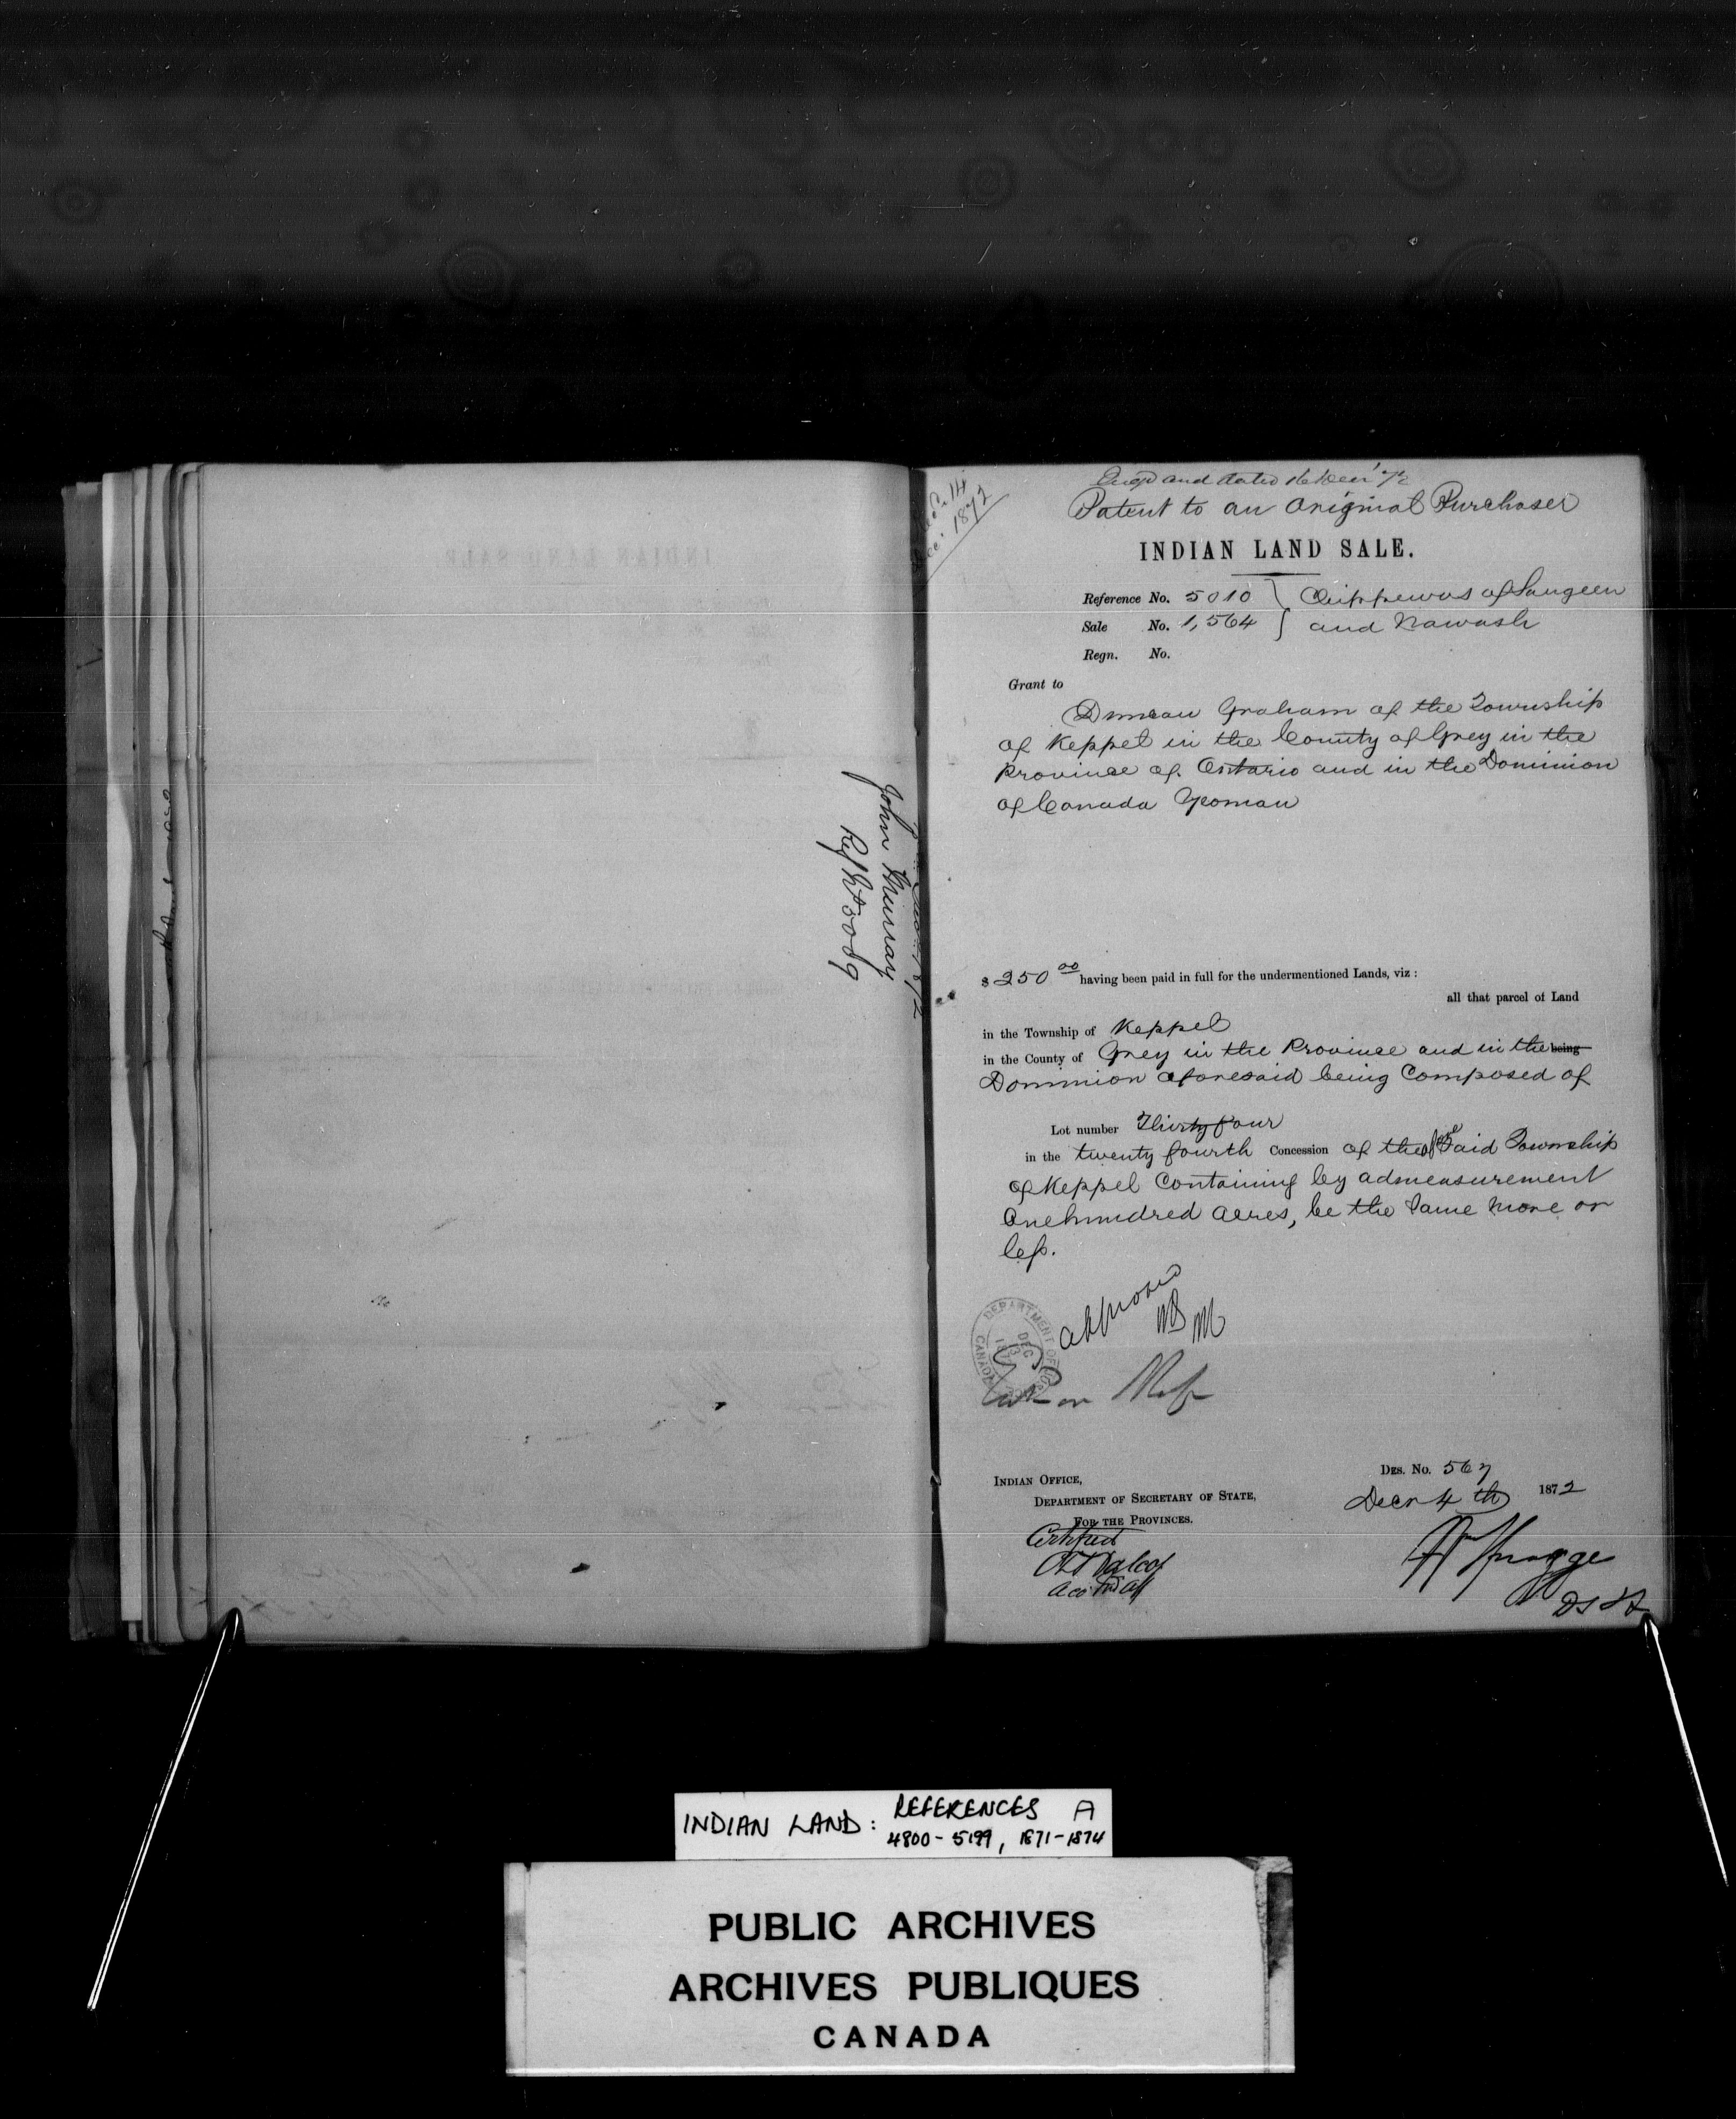 John Murray
Ref No 5009
Dec. 14
Dec. 1872
Eng'd and dated 16 Decr '72
Patent to an Original Purchaser
INDIAN LAND SALE.
Reference No. 5010 } Chippewas of Saugeen
Sale No. 1,564 } and Nawash
Regn. No.
Grant to
Duncan Graham of the Township
of Keppel in the County of Grey in the
Province of Ontario and in the Dominion
of Canada Yeoman
$ 250 00 having been paid in full for the undermentioned Lands, viz :
all that parcel of Land
in the Township of Keppel
in the County of Grey in the Province and in the being
Dominion aforesaid being Composed of
Lot number Thirty four
in the twenty fourth Concession of the Said Township
of Keppel Containing by admeasurement
One hundred acres, be the same more or
less.
approved
DEPARTMENT OF
DEC
CANADA
INDIAN OFFICE,
DEPARTMENT OF SECRETARY OF STATE,
FOR THE PROVINCES.
Des. No. 567
Decr 4th 1872
Certified
W Spragge
INDIAN LAND: REFERENCES A
4800-5199, 1871-1874
PUBLIC ARCHIVES
ARCHIVES PUBLIQUES
CANADA